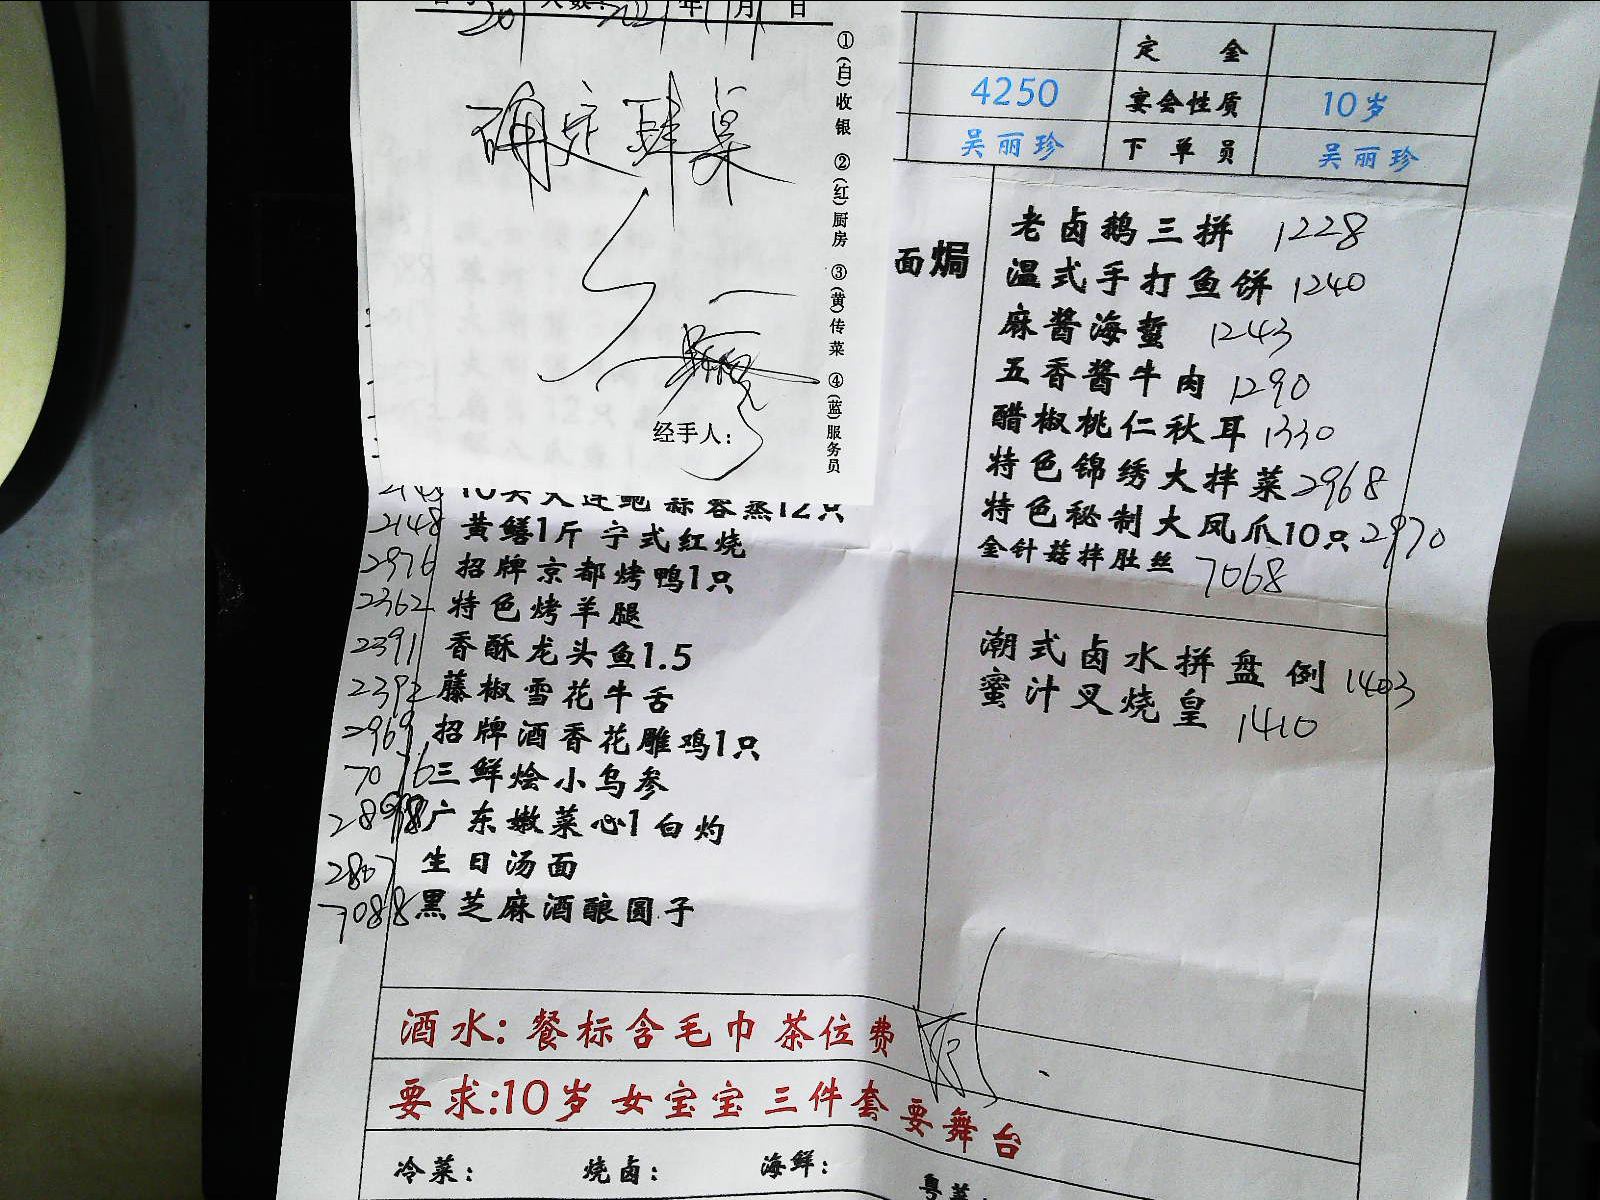 年 月 日
确定肆桌
经手人:
①(白)收银 ②(红)厨房 ③(黄)传菜 ④(蓝)服务员
定 金
4250 宴会性质 10岁
吴丽珍 下单员 吴丽珍
面焗
老卤鹅三拼 1228
温式手打鱼饼 1240
麻酱海蜇 1243
五香酱牛肉 1290
醋椒桃仁秋耳 1330
特色锦绣大拌菜 2968
特色秘制大凤爪10只 2970
金针菇拌肚丝 7068
潮式卤水拼盘 例 1403
蜜汁叉烧皇 1410
10头大连鲍 蒜蓉蒸12只
2148 黄鳝1斤 宁式红烧
2976 招牌京都烤鸭1只
2362 特色烤羊腿
2391 香酥龙头鱼1.5
2392 藤椒雪花牛舌
2969 招牌酒香花雕鸡1只
7016 三鲜烩小乌参
广东嫩菜心1 白灼
2807 生日汤面
7088 黑芝麻酒酿圆子
酒水: 餐标含毛巾 茶位费
要求:10岁 女宝宝 三件套 要舞台
冷菜: 烧卤: 海鲜: 粤菜: